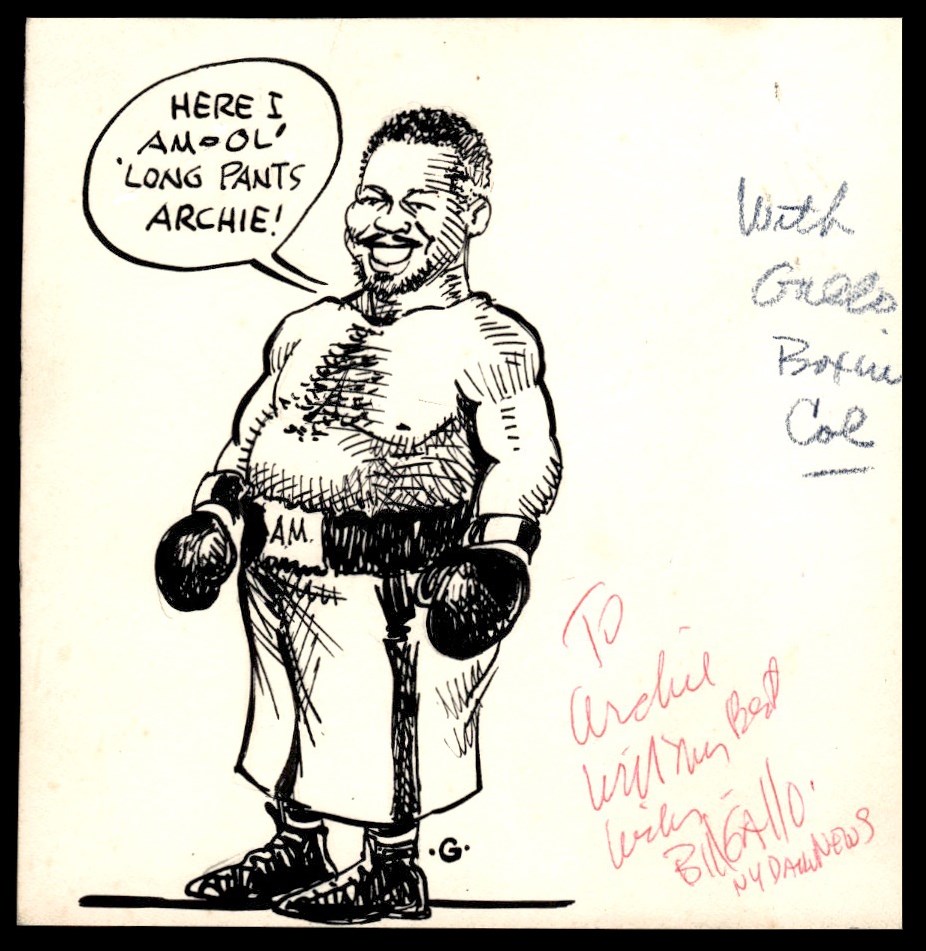 HERE I
AM-OL'
'LONG PANTS
ARCHIE!
AM.
·G·
With
Boxin
Col
To
Archie
With my Best
wishes -
Bill GAllO.
NY DAILY NEWS